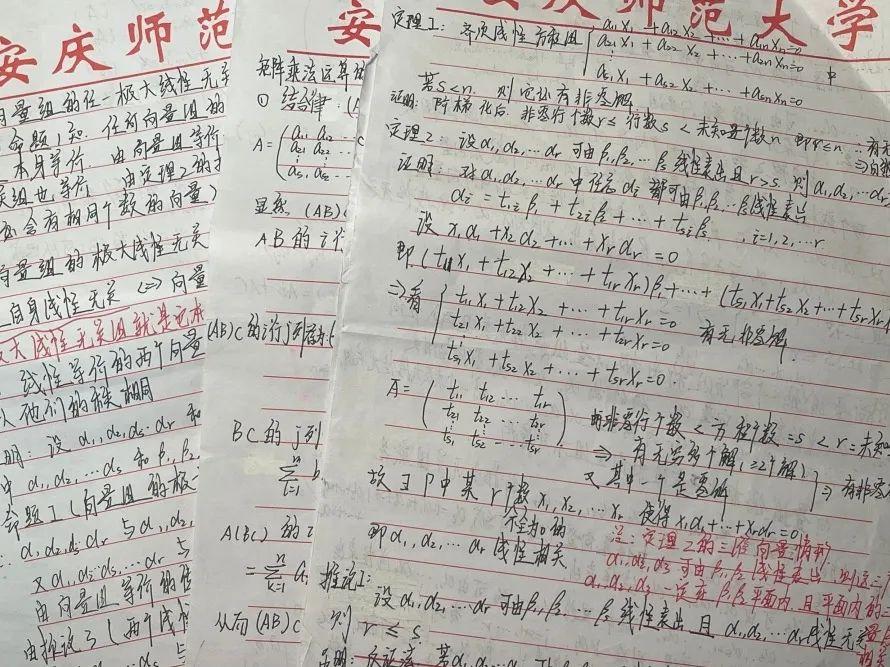 安庆师范
向量组的任一极大线性无关
命题1知.任何向量组的
本身等价 由向量组等价
关组也等价 由定理2的推
必含有相同个数的向量)
向量组的极大线性无关
自身线性无关 <=> 向量
极大线性无关组就是它本
线性等价的两个向量
以他们的秩相同
明: 设 α₁,α₂,α₃…αr 和
α₁,α₂,…αs 和 β₁,β₂,
命题1(向量组的极
α₁,α₂,α₃…αr 与 α₁,α₂,
又α₁,α₂,α₃…αr 与
由向量组等价的传
由推论3(两个线性
安
矩阵乘法运算的
① 结合律: (A
A =
a₁₁ a₁₂ …
a₂₁ a₂₂ …
as₁ as₂ …
显然 (AB)
AB 的 i 行
(AB)C的i行j列元为
BC 的 j列
A(BC) 的 i
从而 (AB)C
庆师范大学
定理1: 齐次线性方程组
a₁₁x₁ + a₁₂x₂ + … + a₁ₙxₙ=0
a₂₁x₁ + a₂₂x₂ + … + a₂ₙxₙ=0 中
as₁x₁ + as₂x₂ + … + asₙxₙ=0
若s<n. 则它还有非零解
证明: 阶梯化后. 非零行个数r≤行数s<未知量个数n 即r≤n ∴有无
定理2: 设 α₁,α₂,…αr 可由β₁,β₂,…βs线性表出且 r>s. 则 α₁,α₂,…αr
证明: 对α₁,α₂,…αr 中任意 αi 都可由β₁,β₂,…βs线性表出
αi = t₁iβ₁ + t₂iβ₂ + … + tsiβs , i=1,2,…r
设 x₁α₁ + x₂α₂ + … + xrαr = 0
即(t₁₁x₁ + t₁₂x₂ + … + t₁rxr)β₁ + … + (ts₁x₁+ts₂x₂+…+tsrxr)
=> 看
t₁₁x₁ + t₁₂x₂ + … + t₁rxr=0
t₂₁x₁ + t₂₂x₂ + … + t₂rxr=0 有无非零解.
ts₁x₁ + ts₂x₂ + … + tsrxr=0.
A =
t₁₁ t₁₂ … t₁r
t₂₁ t₂₂ … t₂r
ts₁ ts₂ … tsr
由非零行个数 < 方程个数=s < r=未知
=> 有无穷多个解(≥2个解)
又其中一个是零解 => 有非零
故∃P中某r个数x₁,x₂,…xr 使得 x₁α₁+…+xrαr=0
不全为0的
即α₁,α₂,…αr 线性相关
注: 定理2的三维向量情形
α₁,α₂,α₃ 可由β₁,β₂线性表出, 则这三
α₁,α₂,α₃一定在β₁β₂平面内.且平面内的三
推论1:
设 α₁,α₂,…αr 可由β₁,β₂,…βs 线性表出 且 α₁,α₂,…αr线性无关
则 r ≤ s
证明: 反证法